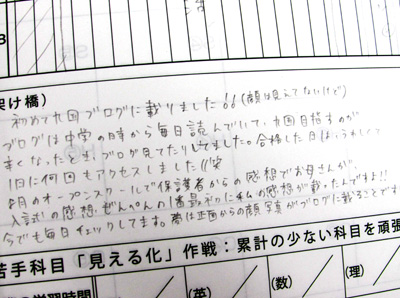 架け橋)
初めて九国ブログに載りました!!(顔は見えてないけど)
ブログは中学の時から毎日読んでいて、九国目指すのが
辛くなったときブログ見てたりしてました。合格した日はうれしくて
1日に何回もアクセスしました((笑
月のオープンスクールで保護者からの感想でお母さんが、
入試の感想、ぜんぺんの1番最初に私の感想が載ったんですよ!!
今でも毎日チェックしてます。夢は正面からの顔写真がブログに載ることです
苦手科目「見える化」作戦:累計の少ない科目を頑張
の学習時間 (英) (数) (理)